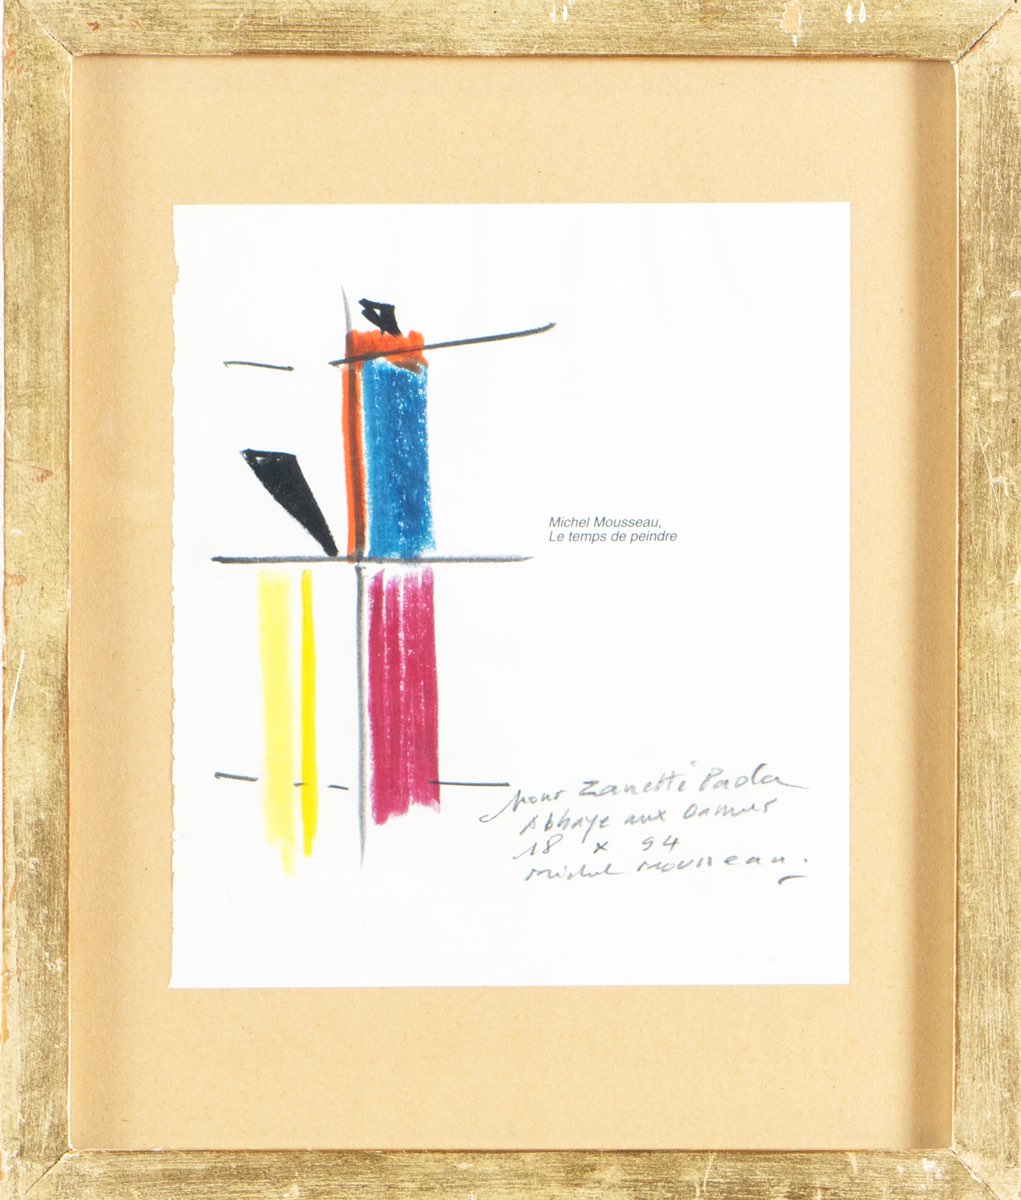 Michel Mousseau,
Le temps de peindre
pour Zanetti Paola
Abbaye aux Dames
18 x 94
Michel Mousseau.